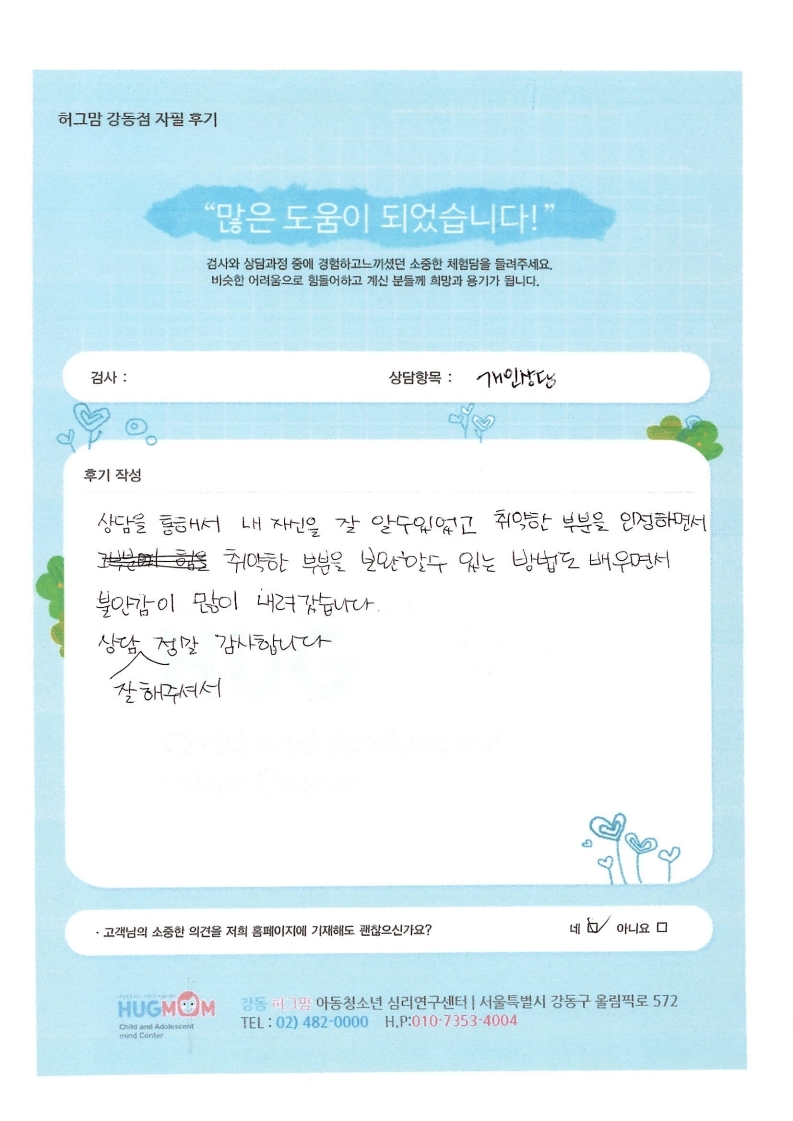 허그맘 강동점 자필 후기
“많은 도움이 되었습니다!”
검사와 상담과정 중에 경험하고느끼셨던 소중한 체험담을 들려주세요.
비슷한 어려움으로 힘들어하고 계신 분들께 희망과 용기가 됩니다.
검사 :
상담항목 : 개인상담
후기 작성
상담을 통해서 내 자신을 잘 알수있었고 취약한 부분을 인정하면서
취약한 부분을 보완할수 있는 방법도 배우면서
불안감이 많이 내려갔습니다.
상담 정말 감사합니다
잘해주셔서
· 고객님의 소중한 의견을 저희 홈페이지에 기재해도 괜찮으신가요?
네 아니요
HUGMOM
Child and Adolescent
mind Center
강동 허그맘 아동청소년 심리연구센터 | 서울특별시 강동구 올림픽로 572
TEL : 02) 482-0000 H.P:010-7353-4004